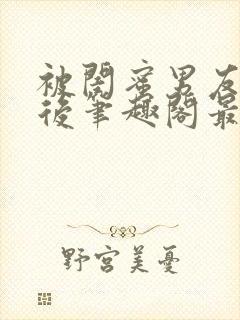 被閣蜜男友
後筆趣閣最
野宮美憂